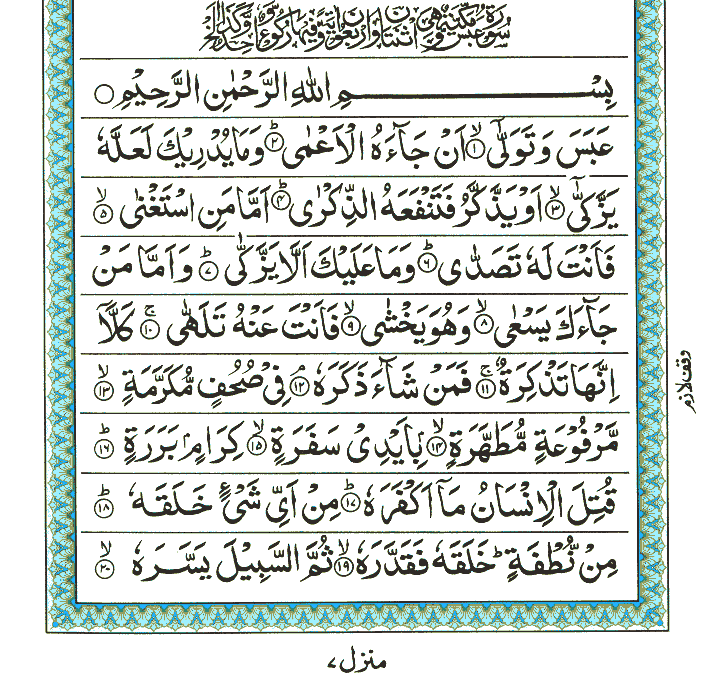 سورة عبس مكية وهي اثنتان واربعون اية وفيها ركوع واحد
بِسْمِ اللهِ الرَّحْمٰنِ الرَّحِيْمِ ○
عَبَسَ وَتَوَلّٰٓىۙ ۝۱ اَنْ جَآءَهُ الْاَعْمٰىؕ ۝۲ وَمَا يُدْرِيْكَ لَعَلَّهٗ
يَزَّكّٰٓىۙ ۝۳ اَوْ يَذَّكَّرُ فَتَنْفَعَهُ الذِّكْرٰىؕ ۝۴ اَمَّا مَنِ اسْتَغْنٰىۙ ۝۵
فَاَنْتَ لَهٗ تَصَدّٰىؕ ۝۶ وَمَا عَلَيْكَ اَلَّا يَزَّكّٰىؕ ۝۷ وَاَمَّا مَنْ
جَآءَكَ يَسْعٰىۙ ۝۸ وَهُوَ يَخْشٰىۙ ۝۹ فَاَنْتَ عَنْهُ تَلَهّٰىۚ ۝۱۰ كَلَّآ
اِنَّهَا تَذْكِرَةٌۚ ۝۱۱ فَمَنْ شَآءَ ذَكَرَهٗۘ ۝۱۲ فِيْ صُحُفٍ مُّكَرَّمَةٍۙ ۝۱۳
مَّرْفُوْعَةٍ مُّطَهَّرَةٍۭۙ ۝۱۴ بِاَيْدِيْ سَفَرَةٍۙ ۝۱۵ كِرَامٍۭ بَرَرَةٍؕ ۝۱۶
قُتِلَ الْاِنْسَانُ مَآ اَكْفَرَهٗؕ ۝۱۷ مِنْ اَيِّ شَيْءٍ خَلَقَهٗؕ ۝۱۸
مِنْ نُّطْفَةٍؕ خَلَقَهٗ فَقَدَّرَهٗۙ ۝۱۹ ثُمَّ السَّبِيْلَ يَسَّرَهٗۙ ۝۲۰
وقف لازم
منزل ۷